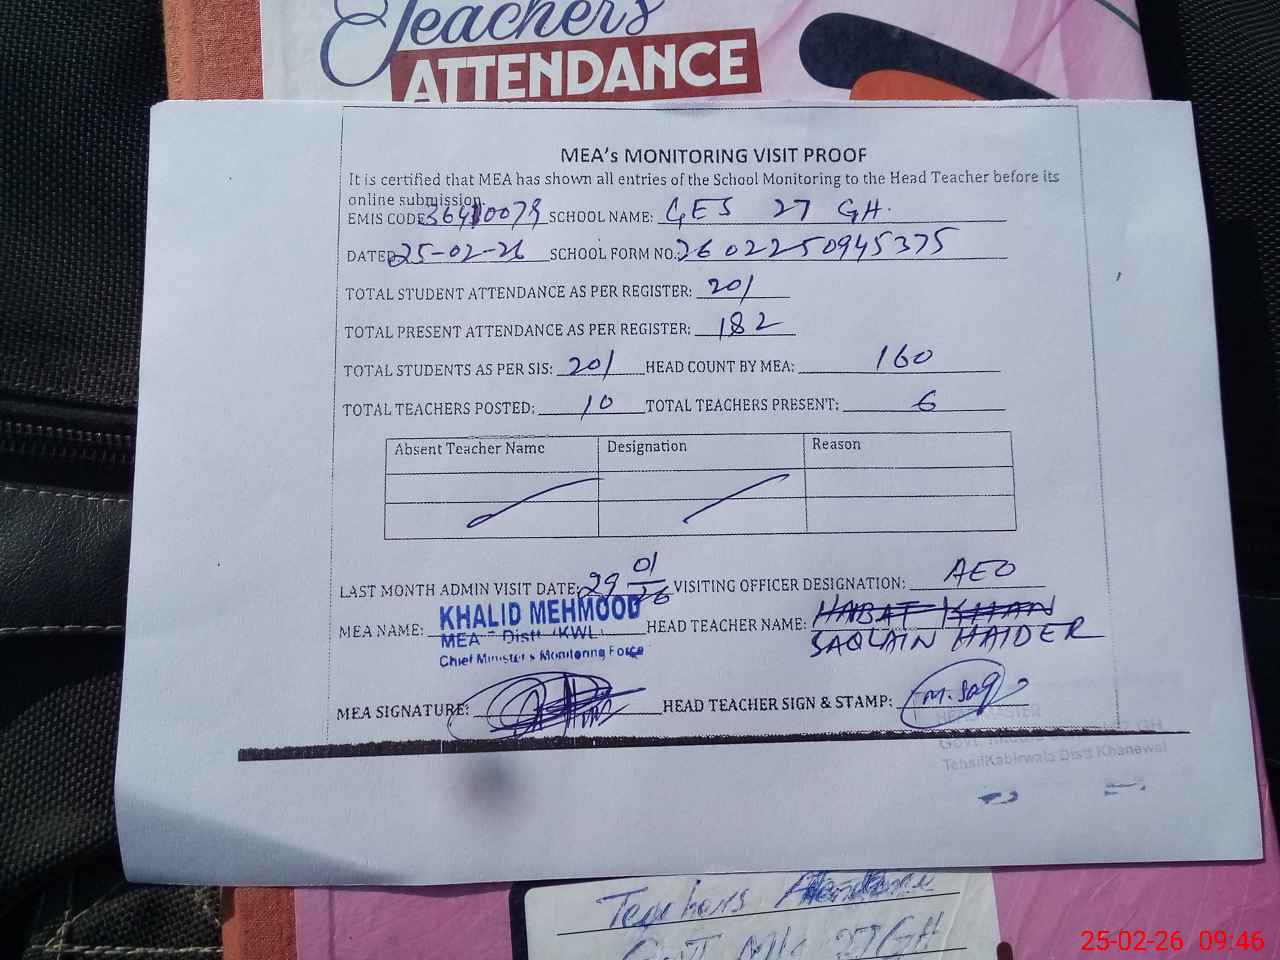 Teachers
ATTENDANCE
MEA's MONITORING VISIT PROOF
It is certified that MEA has shown all entries of the School Monitoring to the Head Teacher before its
online submission.
EMIS CODE 36410079 SCHOOL NAME: GES 27 GH.
DATED 25-02-26 SCHOOL FORM NO. 2602250945375
TOTAL STUDENT ATTENDANCE AS PER REGISTER: 201
TOTAL PRESENT ATTENDANCE AS PER REGISTER: 182
TOTAL STUDENTS AS PER SIS: 201 HEAD COUNT BY MEA: 160
TOTAL TEACHERS POSTED: 10 TOTAL TEACHERS PRESENT: 6
Absent Teacher Name Designation Reason
LAST MONTH ADMIN VISIT DATE: 29 01/26 VISITING OFFICER DESIGNATION: AEO
MEA NAME: KHALID MEHMOOD HEAD TEACHER NAME: HABAT KHAN
MEA Distt (KWL) SAQLAIN HAIDER
Chief Minister's Monitoring Force
MEA SIGNATURE: HEAD TEACHER SIGN & STAMP: M. Saq
Tehsil Kabirwala Distt Khanewal
Teachers Attendance
Govt M/s 27 GH
25-02-26 09:46